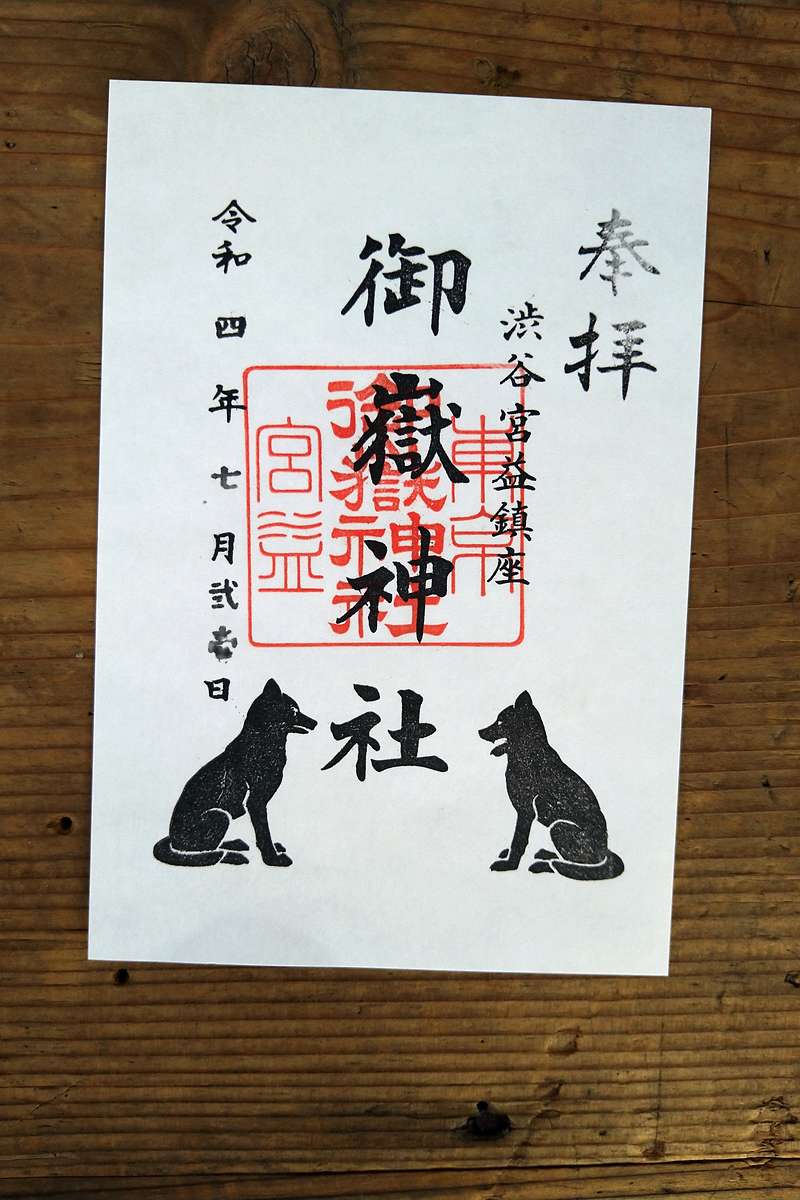 奉拝
渋谷宮益鎮座
御嶽神社
東京
御嶽神社
宮益
令和四年七月弐壱日